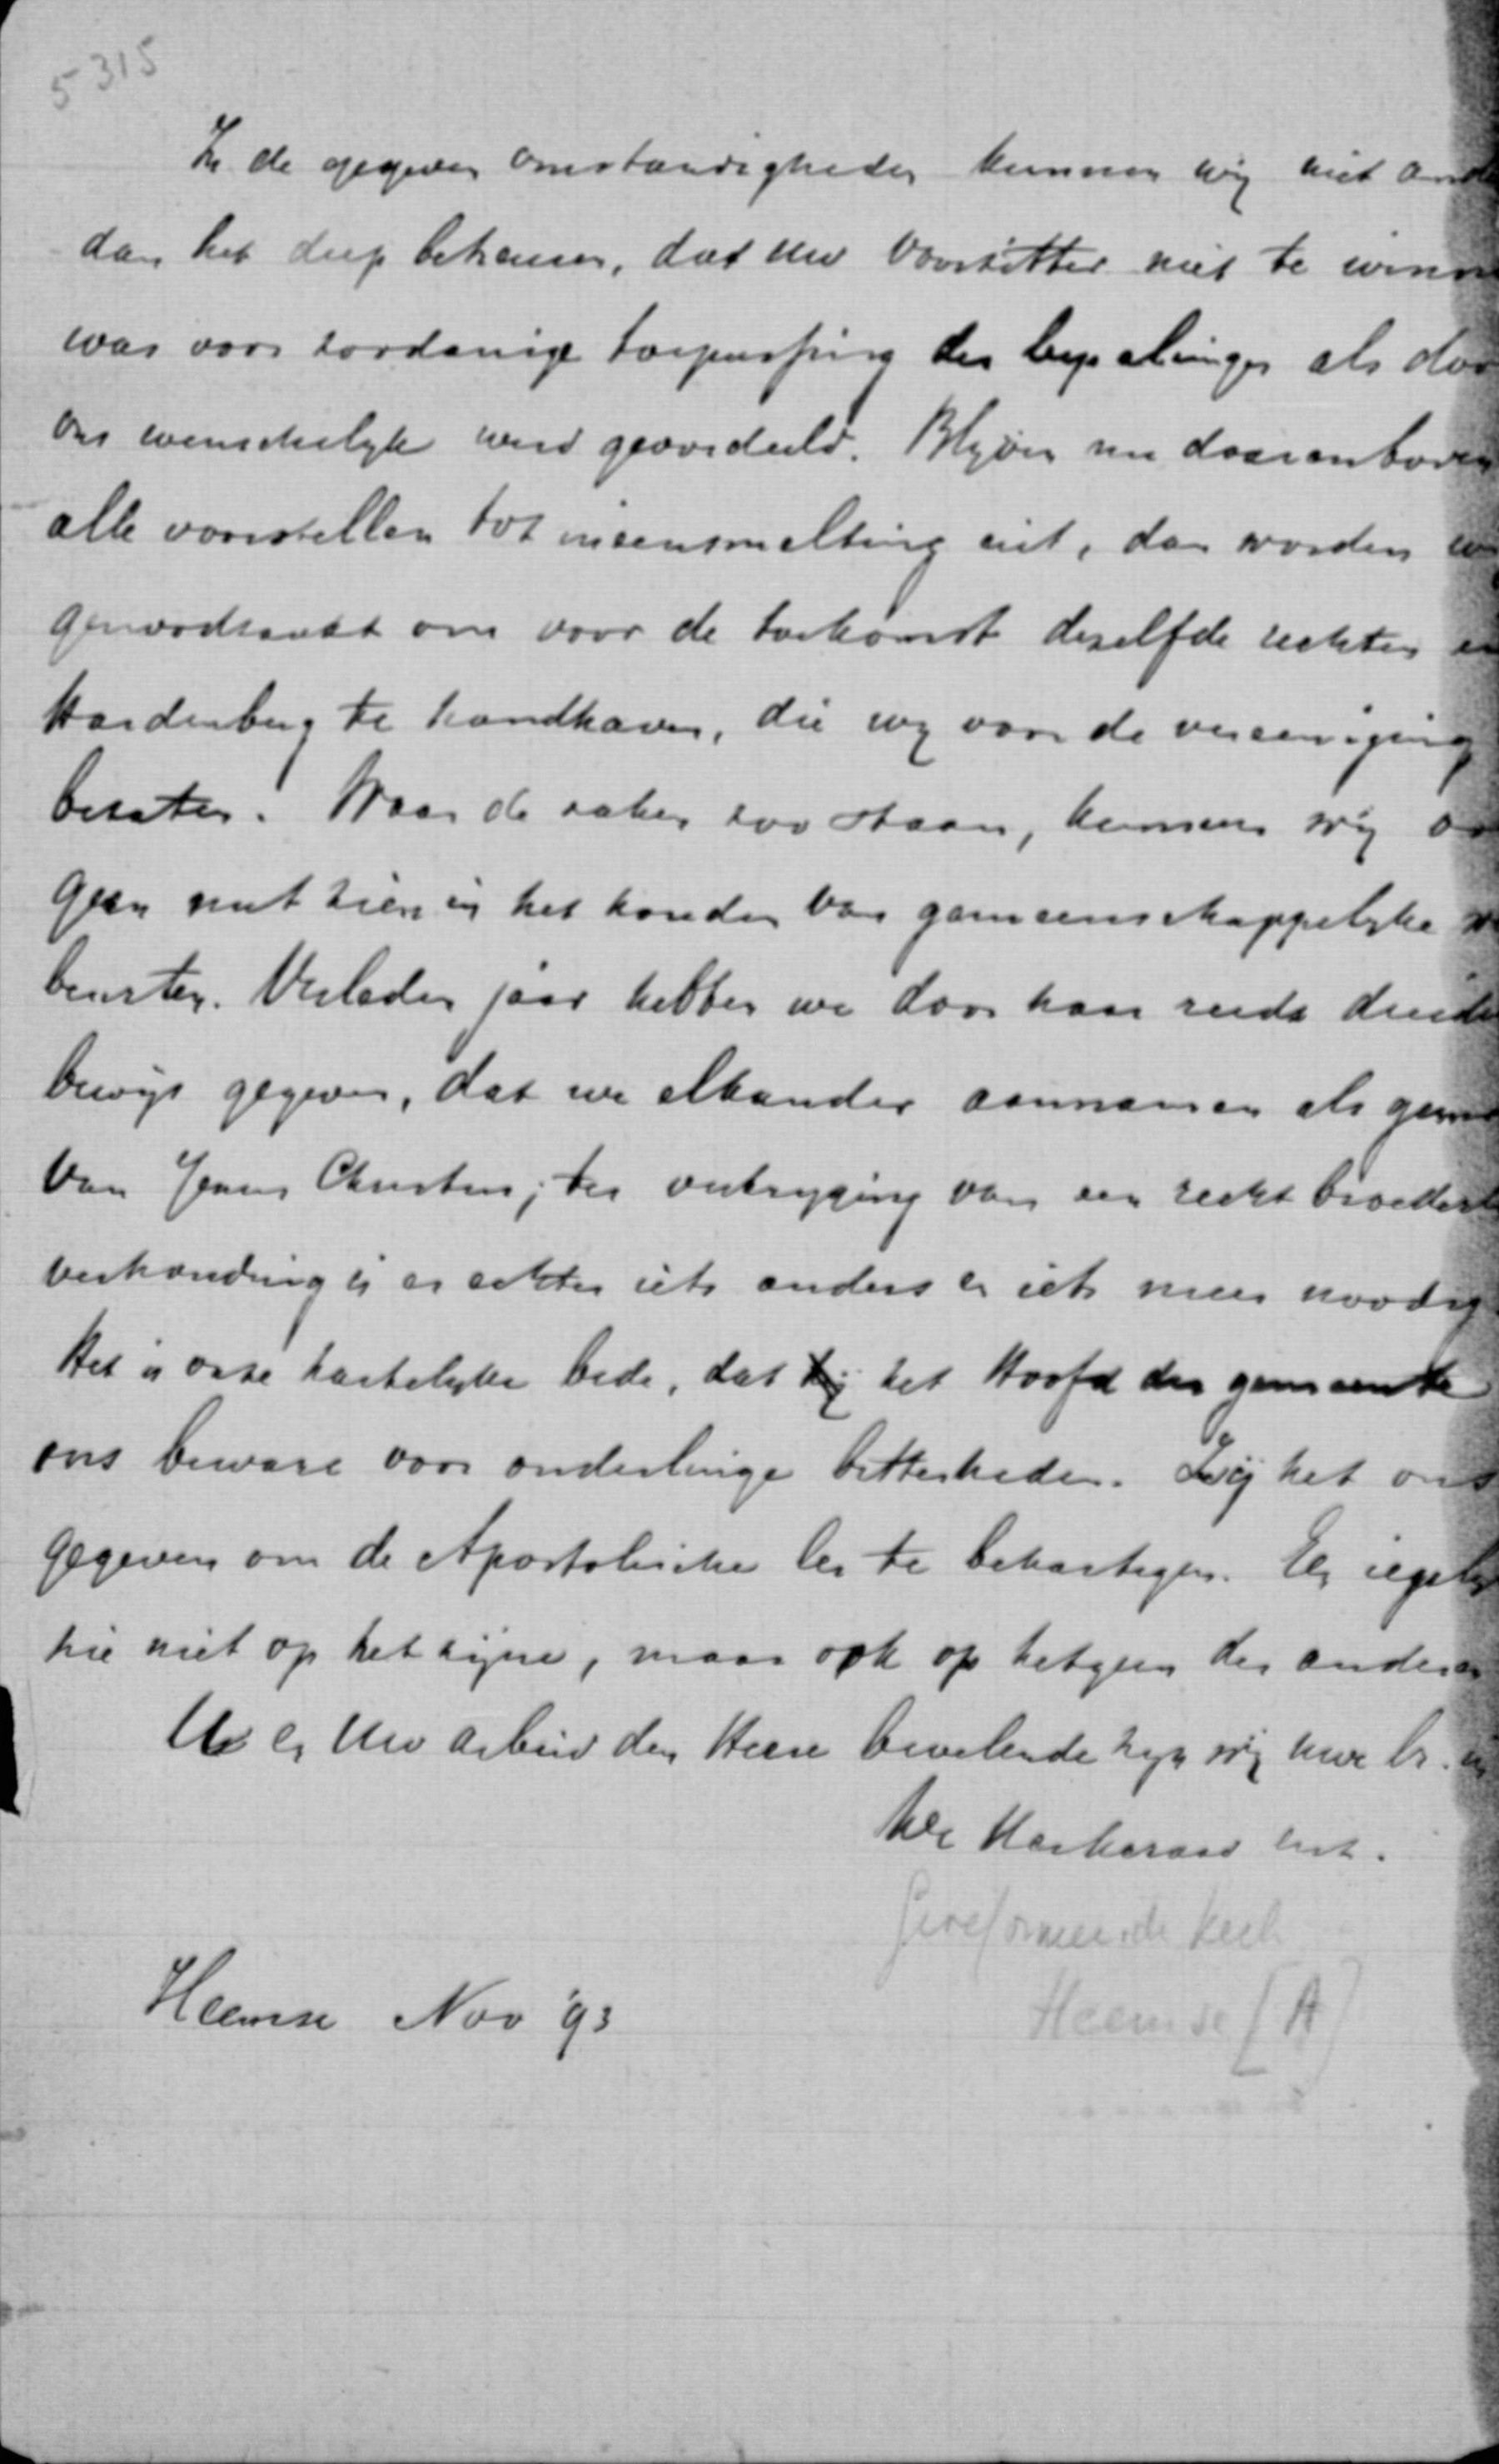 5315
In de gegeven omstandigheden kunnen wij niet and
dan het diep betreuren, dat uw Voorzitter niet te winn
was voor zoodanige toepassing der bepalingen als doo
ons wenschelijk werd geoordeeld. Blijven nu daarenboven
alle voorstellen tot ineensmelting uit, dan worden w
genoodzaakt om voor de toekomst dezelfde rechten in
Hardenberg te handhaven, die wij voor de vereeniging
bezaten. Waar de zaken zoo staan, kunnen wij oo
geen nut zien in het houden van gemeenschappelijke
beurten. Verleden jaar hebben we door haar reeds duide
bewijs gegeven, dat we elkander aannamen als geme
van Jezus Christus; ter verkrijging van een recht broederl
verhouding is er echter iets anders en iets meer noodig.
Het is onze hartelijke bede, dat het Hoofd der gemeente
ons beware voor onderlinge bitterheden. Zij het ons
gegeven om de Apostolische les te behartigen. En iegelij
zie niet op het zijne, maar ook op hetgeen der anderen
U en Uw arbeid den Heere bevelende zijn wij uwe br. in
De Kerkeraad
Gereformeerde kerk
Heemse Nov '93
Heemse (A)